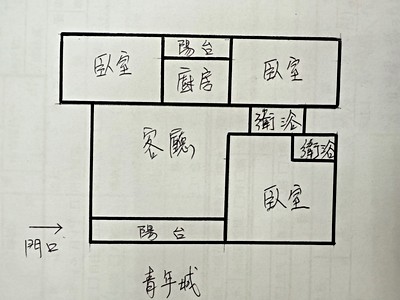 陽台
臥室
厨房
臥室
衛浴
客廳
衛浴
臥室
陽台
門口
青年城